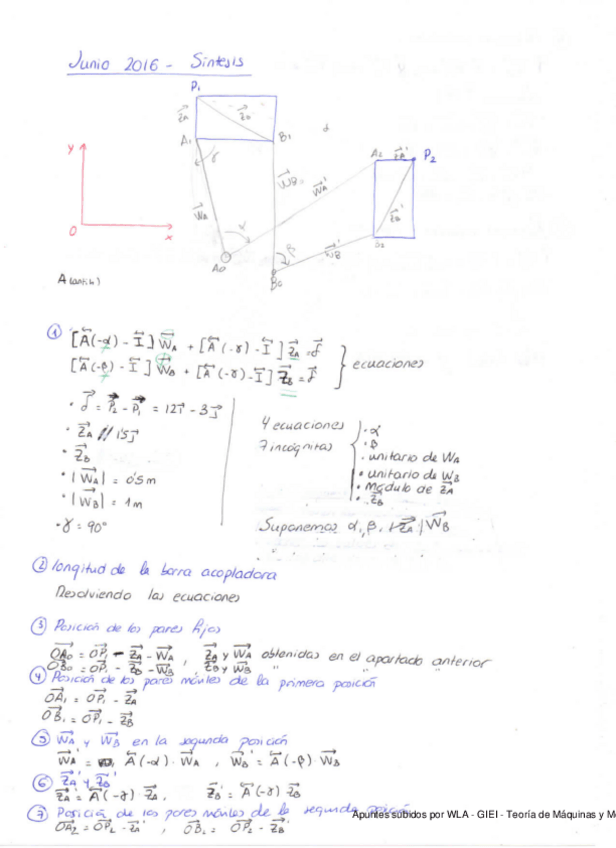 Junio 2016 - Síntesis
P₁
Z⃗A
Z⃗B
A₁
B₁
α
γ
W⃗B
W⃗A'
A₂
Z⃗A'
P₂
y
W⃗A
Z⃗B'
O
x
α
β
W⃗B'
B₂
A₀
B₀
① [A⃡(-α) - I⃡] W⃗A + [A⃡(-γ) - I⃡] Z⃗A = δ⃗
[A⃡(-β) - I⃡] W⃗B + [A⃡(-γ) - I⃡] Z⃗B = δ⃗
ecuaciones
· δ⃗ = P⃗₂ - P⃗₁ = 12i⃗ - 3j⃗
· Z⃗A // 1'5j⃗
· Z⃗B
· |W⃗A| = 0'5m
· |W⃗B| = 1m
· γ = 90°
4 ecuaciones
7 incógnitas
· α
· β
· unitario de WA
· unitario de WB
· módulo de Z⃗A
· Z⃗B
Suponemos α, β,
② longitud de la barra acopladora
Resolviendo las ecuaciones
③ Posición de los pares fijos
OA₀ = OP₁ - Z⃗A - W⃗A , Z⃗A y W⃗A obtenidas en el apartado anterior
OB₀ = OP₁ - Z⃗B - W⃗B Z⃗B y W⃗B " "
④ Posición de los pares móviles de la primera posición
OA₁ = OP₁ - Z⃗A
OB₁ = OP₁ - Z⃗B
⑤ W⃗A y W⃗B en la segunda posición
W⃗A' = A⃡(-α) · W⃗A , W⃗B' = A⃡(-β) · W⃗B
⑥ Z⃗A' y Z⃗B'
Z⃗A' = A⃡(-γ) Z⃗A, Z⃗B' = A⃡(-γ) Z⃗B
⑦ Posición de los pares móviles de la segunda posición
OA₂ = OP₂ - Z⃗A' , OB₂ = OP₂ - Z⃗B'
Apuntes subidos por WLA - GIEI - Teoría de Máquinas y M